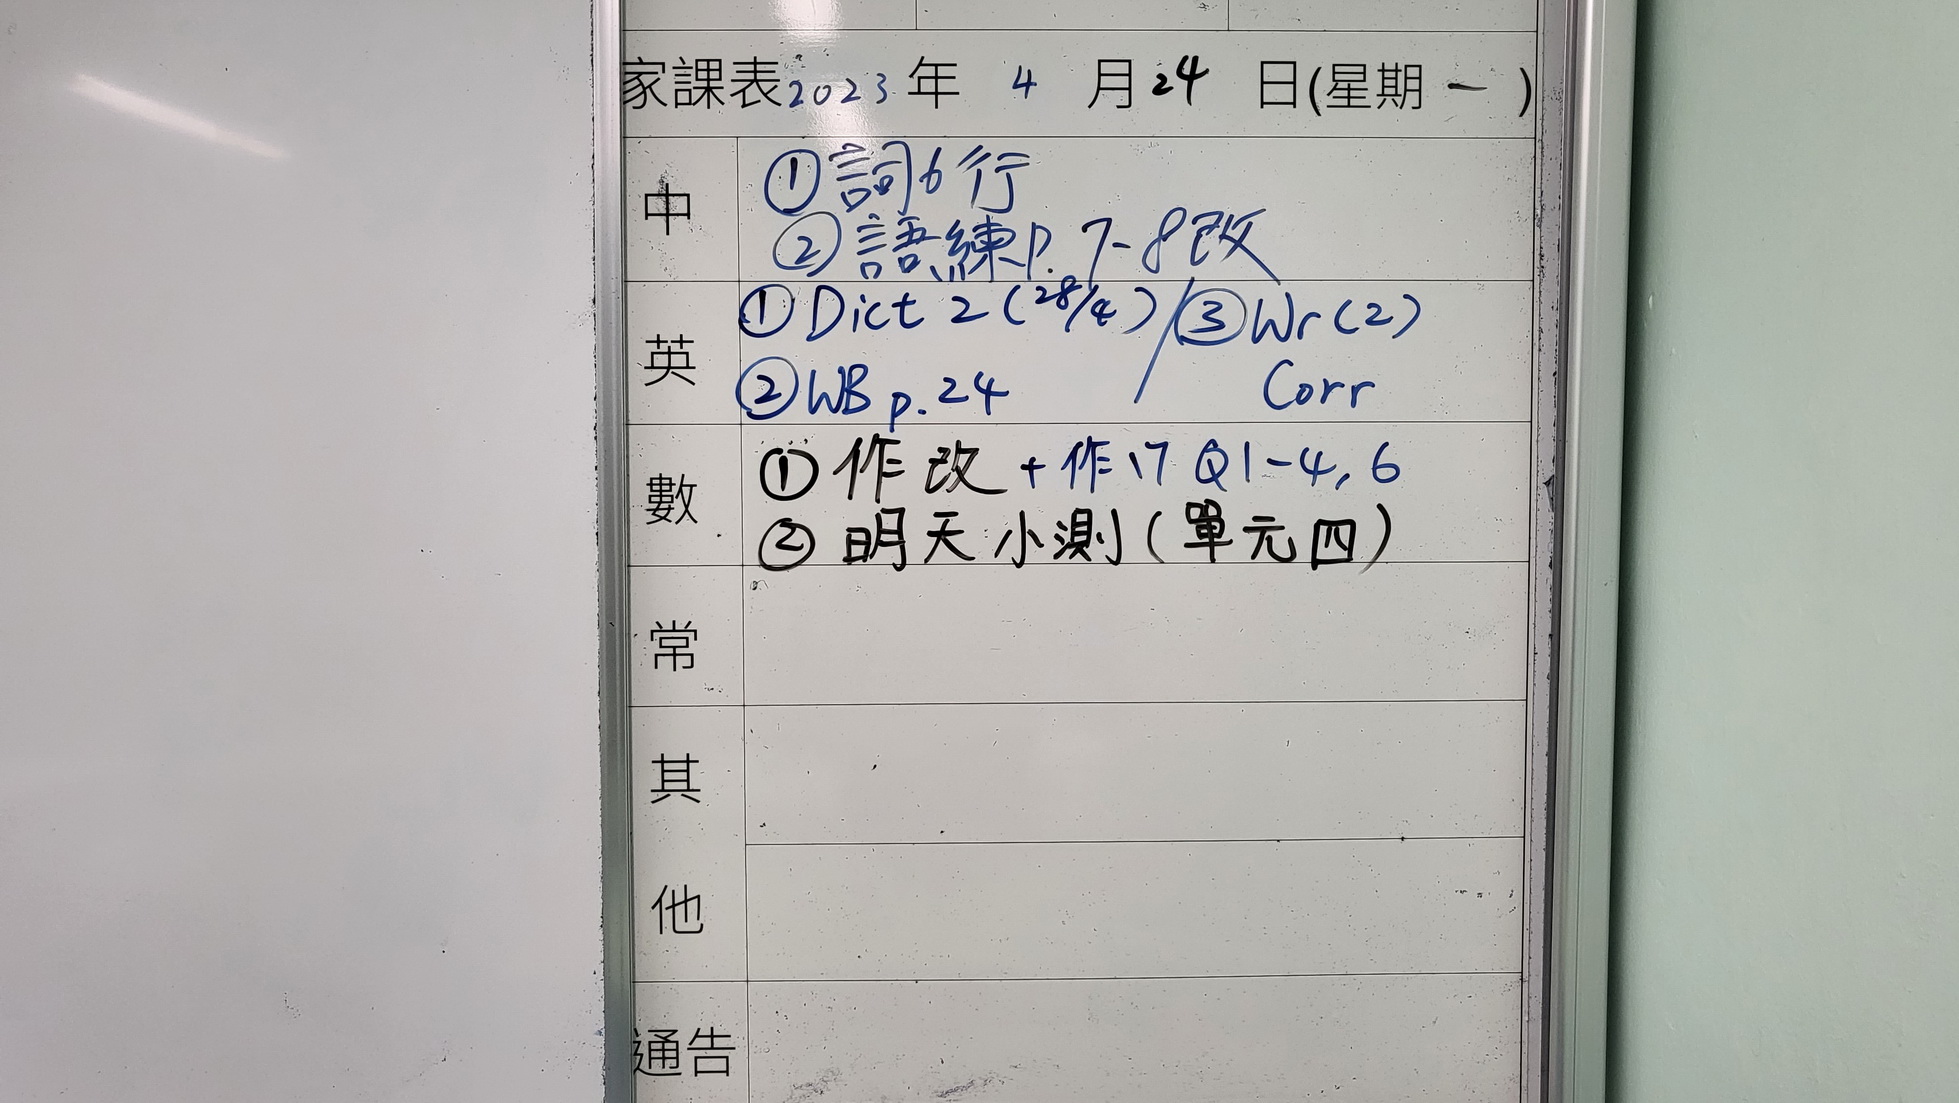 家課表 2023 年 4 月 24 日(星期 一 )
中
① 詞6行
② 語練P. 7-8改
英
① Dict 2 (28/4) / ③ Wr (2)
② WB p. 24 Corr
數
① 作改 + 作17 Q1-4, 6
② 明天小測 (單元四)
常
其
他
通告